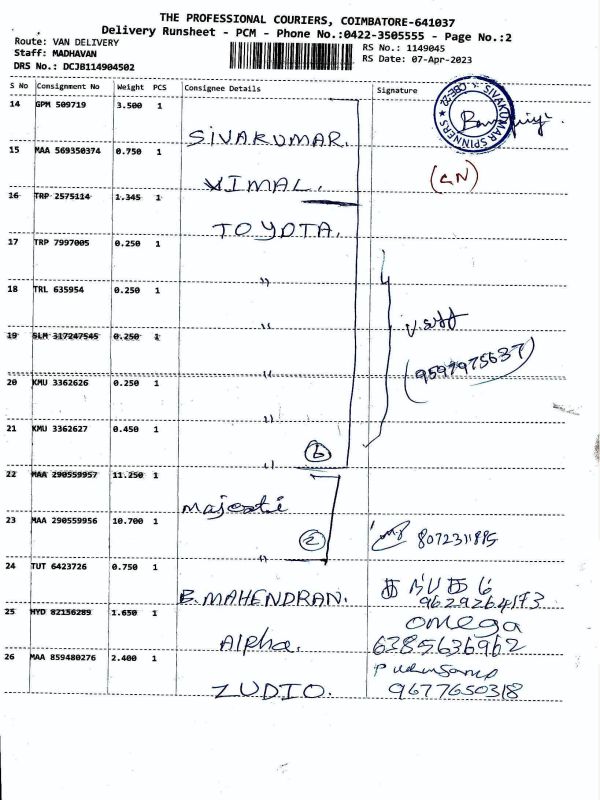 THE PROFESSIONAL COURIERS, COIMBATORE-641037
Delivery Runsheet - PCM - Phone No.:0422-3505555 - Page No.:2
Route: VAN DELIVERY
Staff: MADHAVAN
DRS No.: DCJB114904502
RS No.: 1149045
RS Date: 07-Apr-2023
S No Consignment No Weight PCS Consignee Details Signature
14 GPM 509719 3.500 1 SIVAKUMAR.
SIVAKUMAR SPINNERS
15 MAA 569350374 0.750 1 VIMAL.
16 TRP 2575114 1.345 1 TOYOTA.
17 TRP 7997005 0.250 1 "
18 TRL 635954 0.250 1 "
19 SLM 317247545 0.250 1 "
9597975637
20 KMU 3362626 0.250 1 "
21 KMU 3362627 0.450 1 "
6
22 MAA 290559957 11.250 1
23 MAA 290559956 10.700 1 "
2
8072311895
24 TUT 6423726 0.750 1 B.MAHENDRAN.
9629264173
25 HYD 82156289 1.650 1 Alpha.
omega
6385636962
26 MAA 859480276 2.400 1 ZUDIO.
9677650318